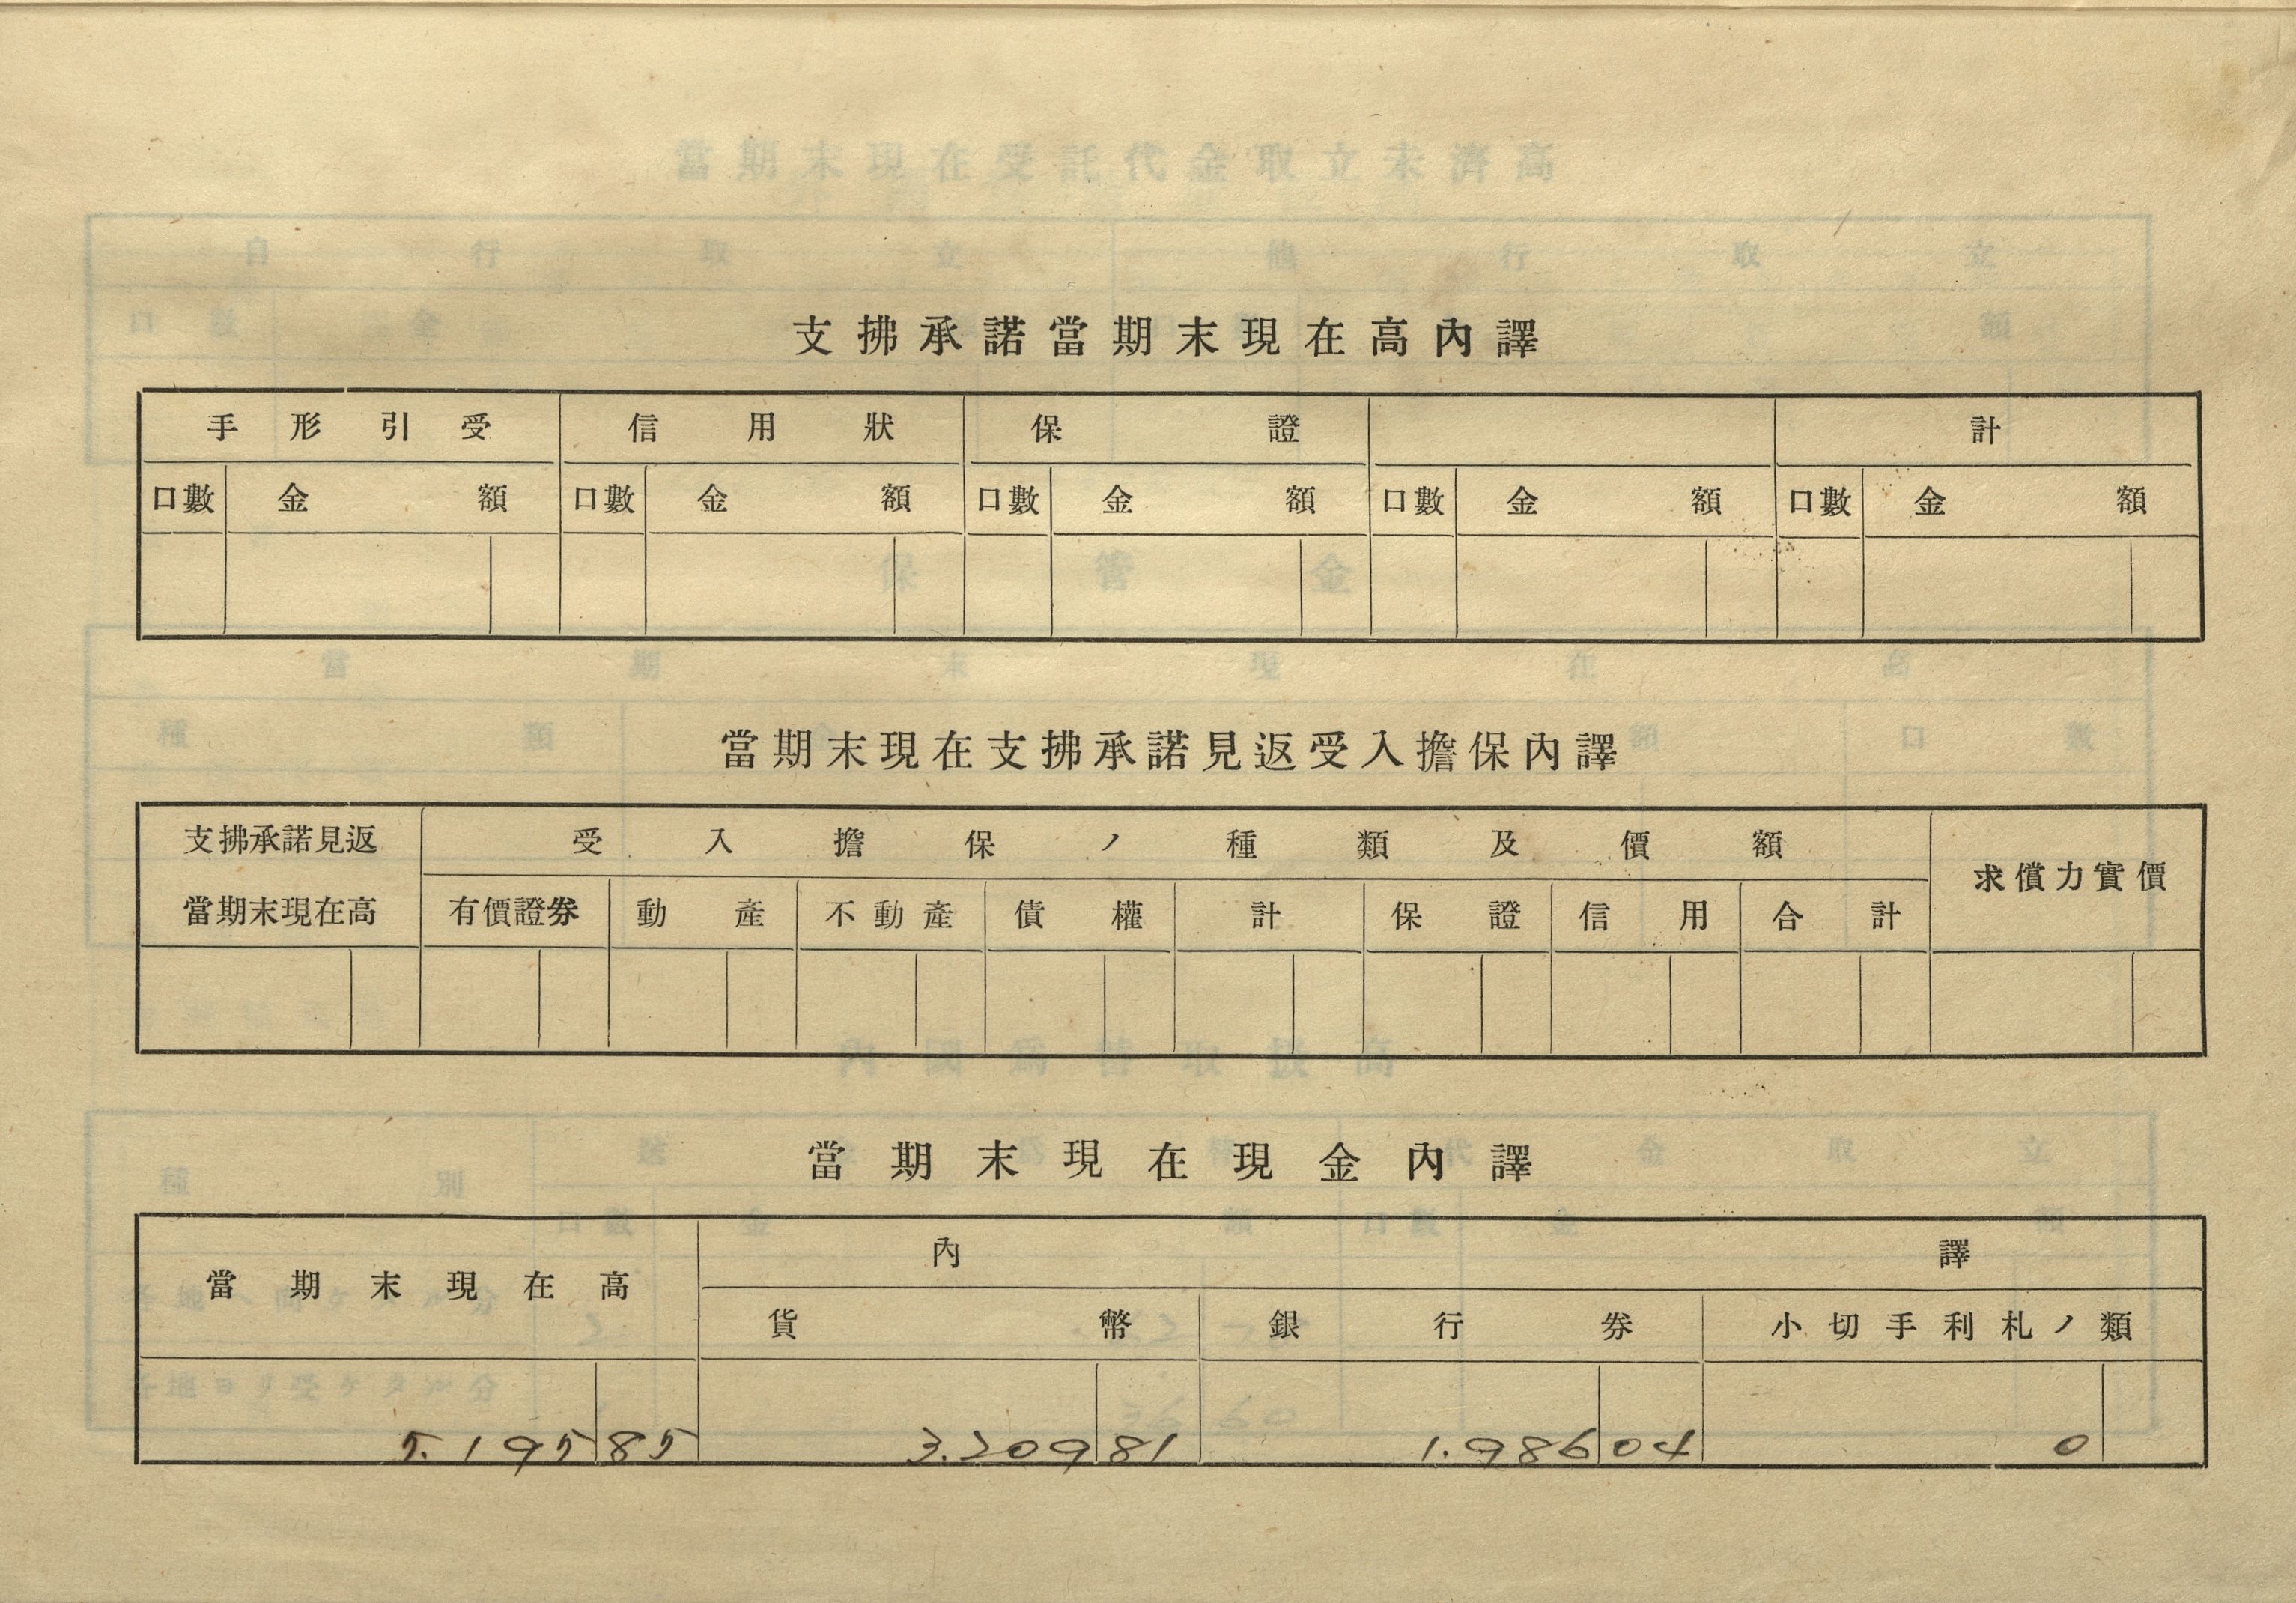 支拂承諾當期末現在高內譯
手形引受 信用狀 保證 計
口數 金額 口數 金額 口數 金額 口數 金額 口數 金額
當期末現在支拂承諾見返受入擔保內譯
支拂承諾見返 受入擔保ノ種類及價額 求償力實價
當期末現在高 有價證券 動產 不動產 債權 計 保證 信用 合計
當期末現在現金內譯
當期末現在高 內譯
貨幣 銀行券 小切手利札ノ類
5.195 85 3.209 81 1.986 04 0